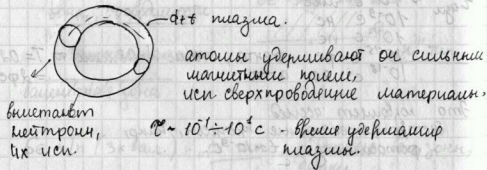 d+t плазма.
атомы удерживают оч сильным
магнитным полем,
исп сверхпроводящие материалы.
вылетают
нейтроны,
их исп.
τ ~ 10⁻¹ ÷ 10¹ с - время удержания
плазмы.